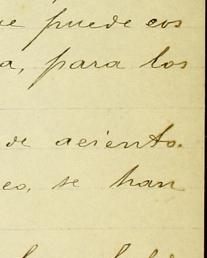 e puede cos
a, para los
de aciento.
eo, se han